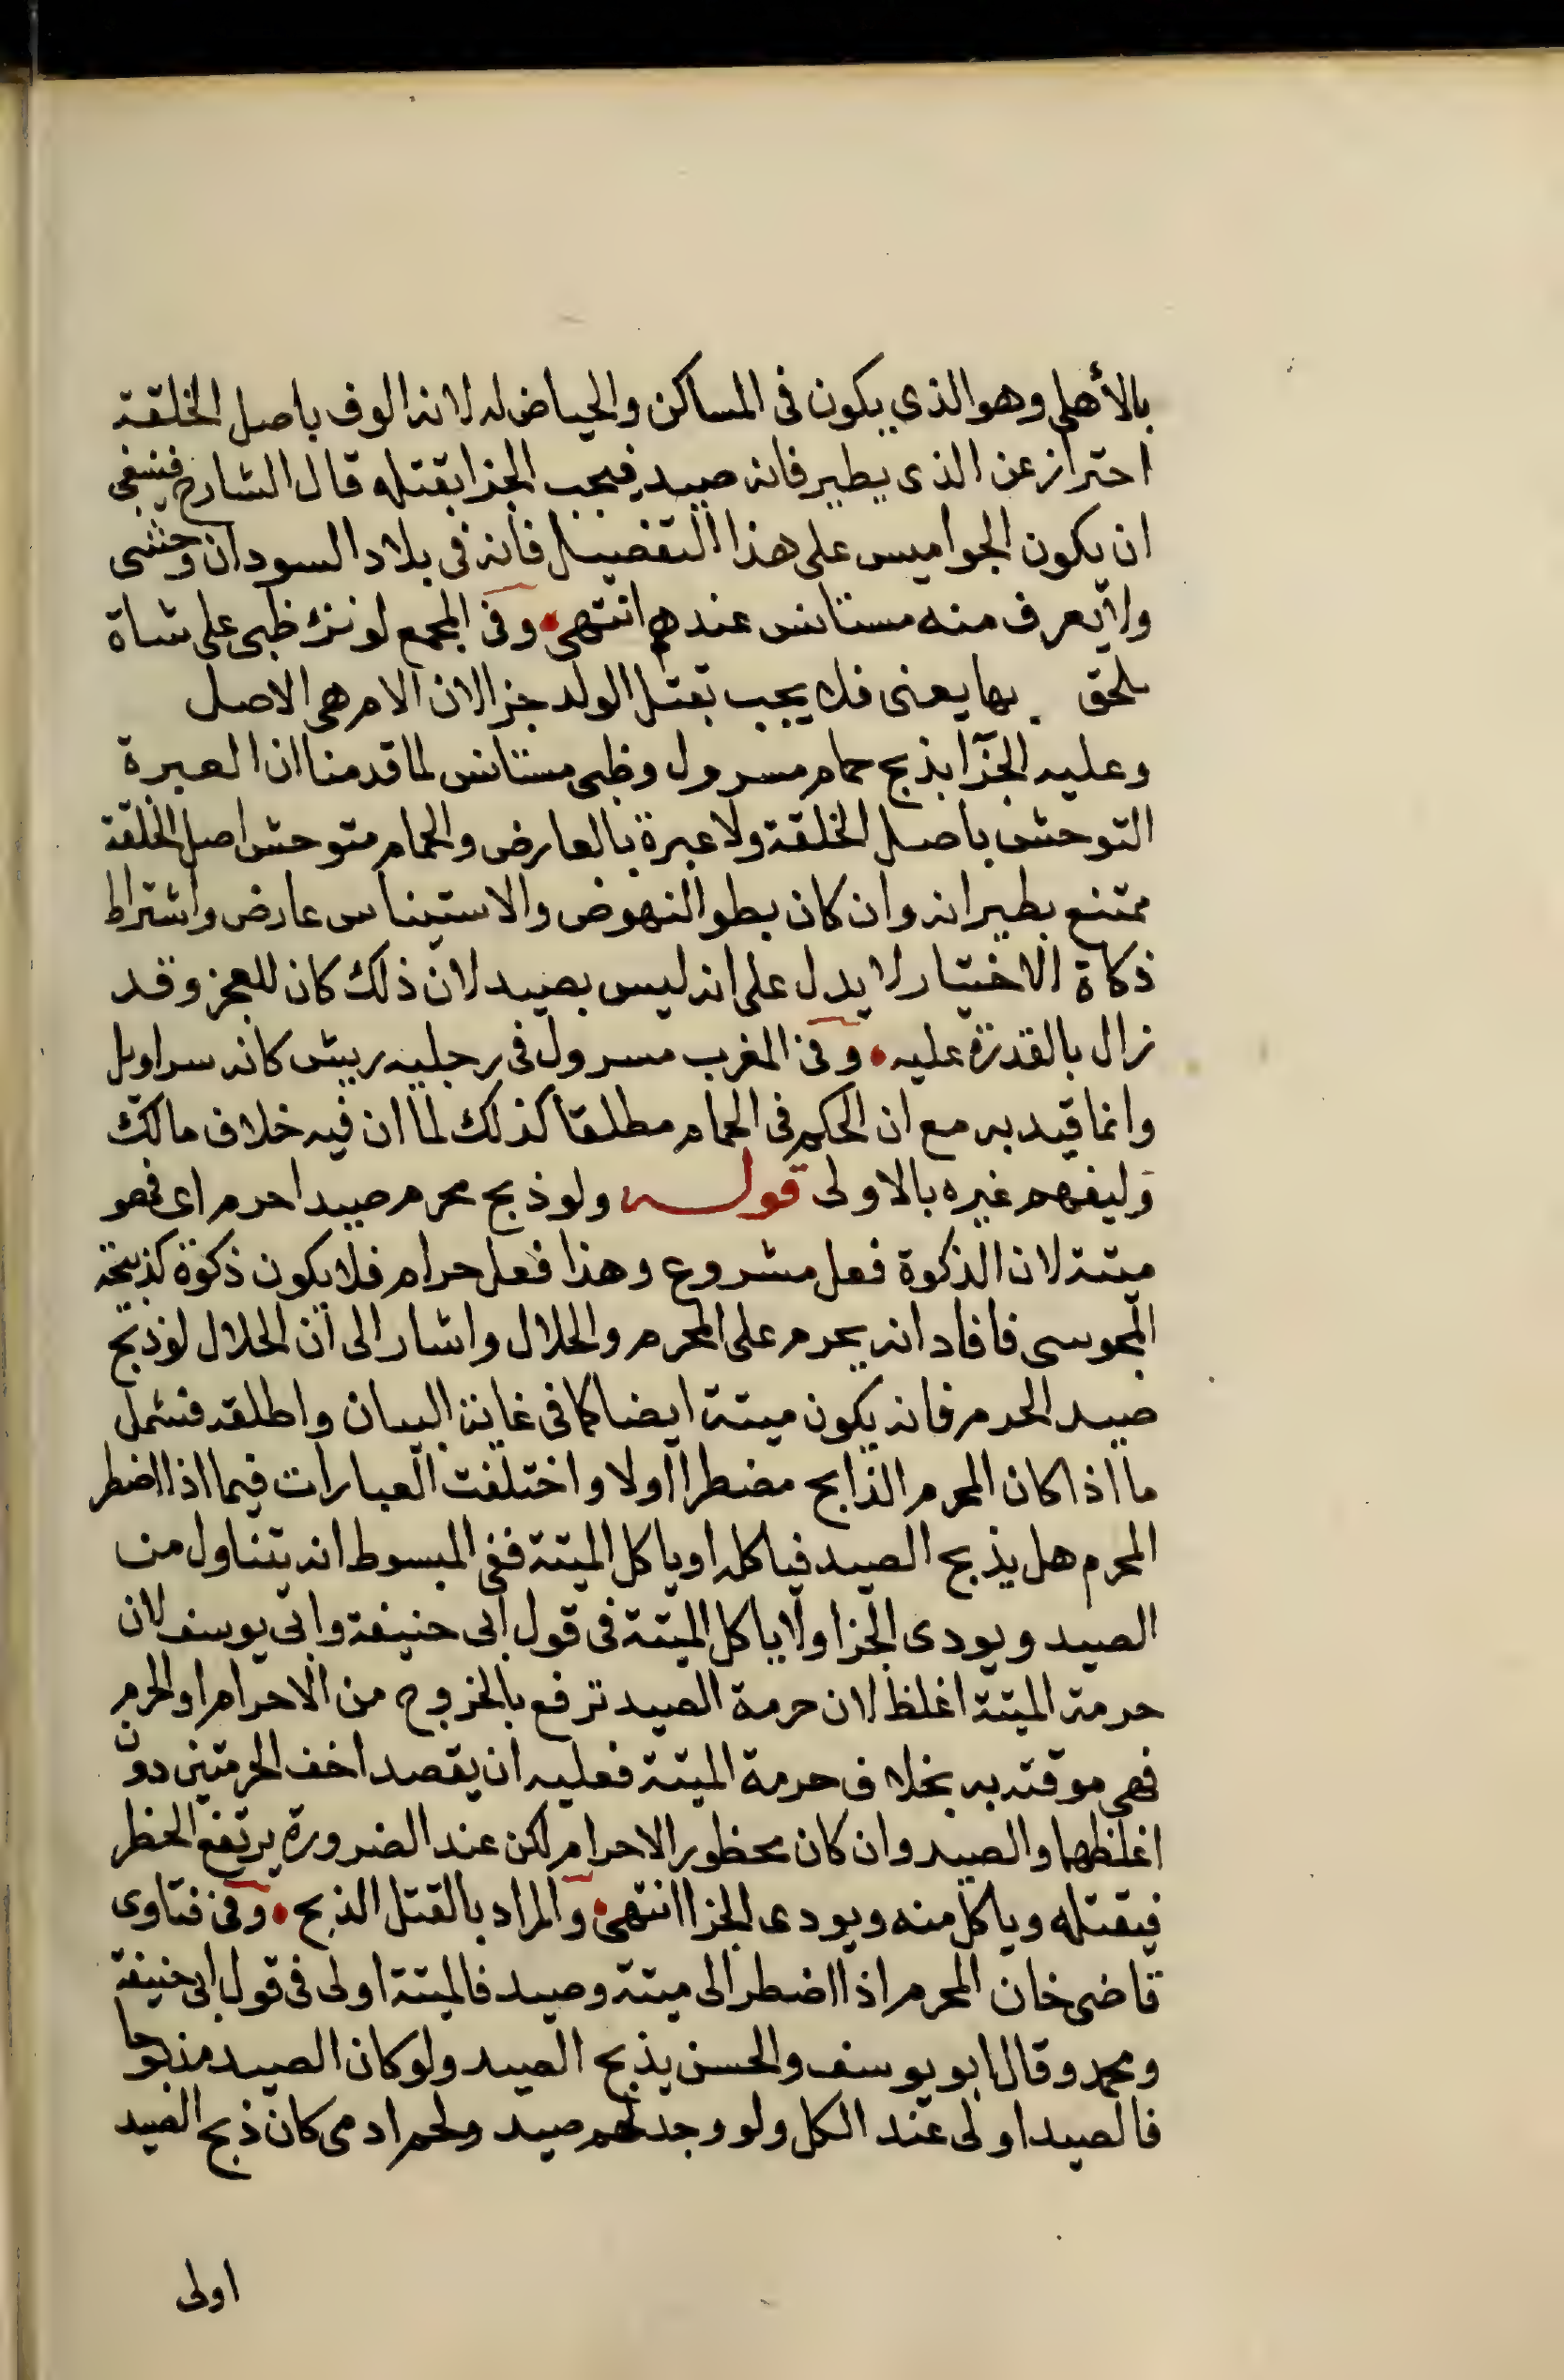 بالأهلى وهو الذي يكون فى المساكن والحياض لد لانه الوف باصل الخلقة
احتراز عن الذى يطير فانه صيد فيجب الجزا بقتله قال الشارح فينبغى
ان يكون الجواميس على هذا التفضيل فانه فى بلاد السودان وحشى
ولا يعرف منه مستانس عندهم انتهى وفى المجمع لو نزى ظبى على شاة
يلحق بها يعنى فلا يجب بقتل الولد جزا لان الام هى الاصل
وعليه الجزآ بذبح حمام مسرول وظبى مستانس لما قدمنا ان العبرة
التوحش باصل الخلقة ولا عبرة بالعارض والحمام متوحش اصل الخلقة
ممتنع بطيرانه وان كان بطو النهوض والاستيناس عارض واشتراط
ذكاة الاختيار لا يدل على انه ليس بصيد لان ذلك كان للعجز وقد
زال بالقدرة عليه وفى المغرب مسرول فى رجليه ريش كانه سراويل
وانما قيد به مع ان الحكم فى الحمام مطلقا كذلك لما ان فيه خلاف مالك
وليفهم غيره بالاولى قوله ولو ذبح محرم صيدا حرم اى فهو
ميتة لان الذكوة فعل مشروع وهذا فعل حرام فلا يكون ذكوة كذبيحة
المجوسى فافاد انه يحرم على المحرم والحلال واشار الى ان الحلال لو ذبح
صيد الحرم فانه يكون ميتة ايضا كما فى غاية البيان واطلقه فشمل
ما اذا كان المحرم الذابح مضطرا اولا واختلفت العبارات فيما اذا اضطر
المحرم هل يذبح الصيد فياكله او ياكل الميتة ففى المبسوط انه يتناول من
الصيد ويودى الجزا ولا ياكل الميتة فى قول ابى حنيفة وابى يوسف لان
حرمة الميتة اغلظ لان حرمة الصيد ترفع بالخروج من الاحرام او الحرم
فهى موقتة به بخلاف حرمة الميتة فعليه ان يقصد اخف الحرمتين دون
اغلظهما والصيد وان كان محظور الاحرام لكن عند الضرورة يرتفع الحظر
فيقتله وياكل منه ويودى الجزا انتهى والمراد بالقتل الذبح وفى فتاوى
قاضى خان المحرم اذا اضطر الى ميتة وصيد فالميتة اولى فى قول ابى حنيفة
ومحمد وقال ابو يوسف والحسن يذبح الصيد ولو كان الصيد مذبوحا
فالصيد اولى عند الكل ولو وجد لحم صيد ولحم ادمى كان ذبح الصيد
اولى